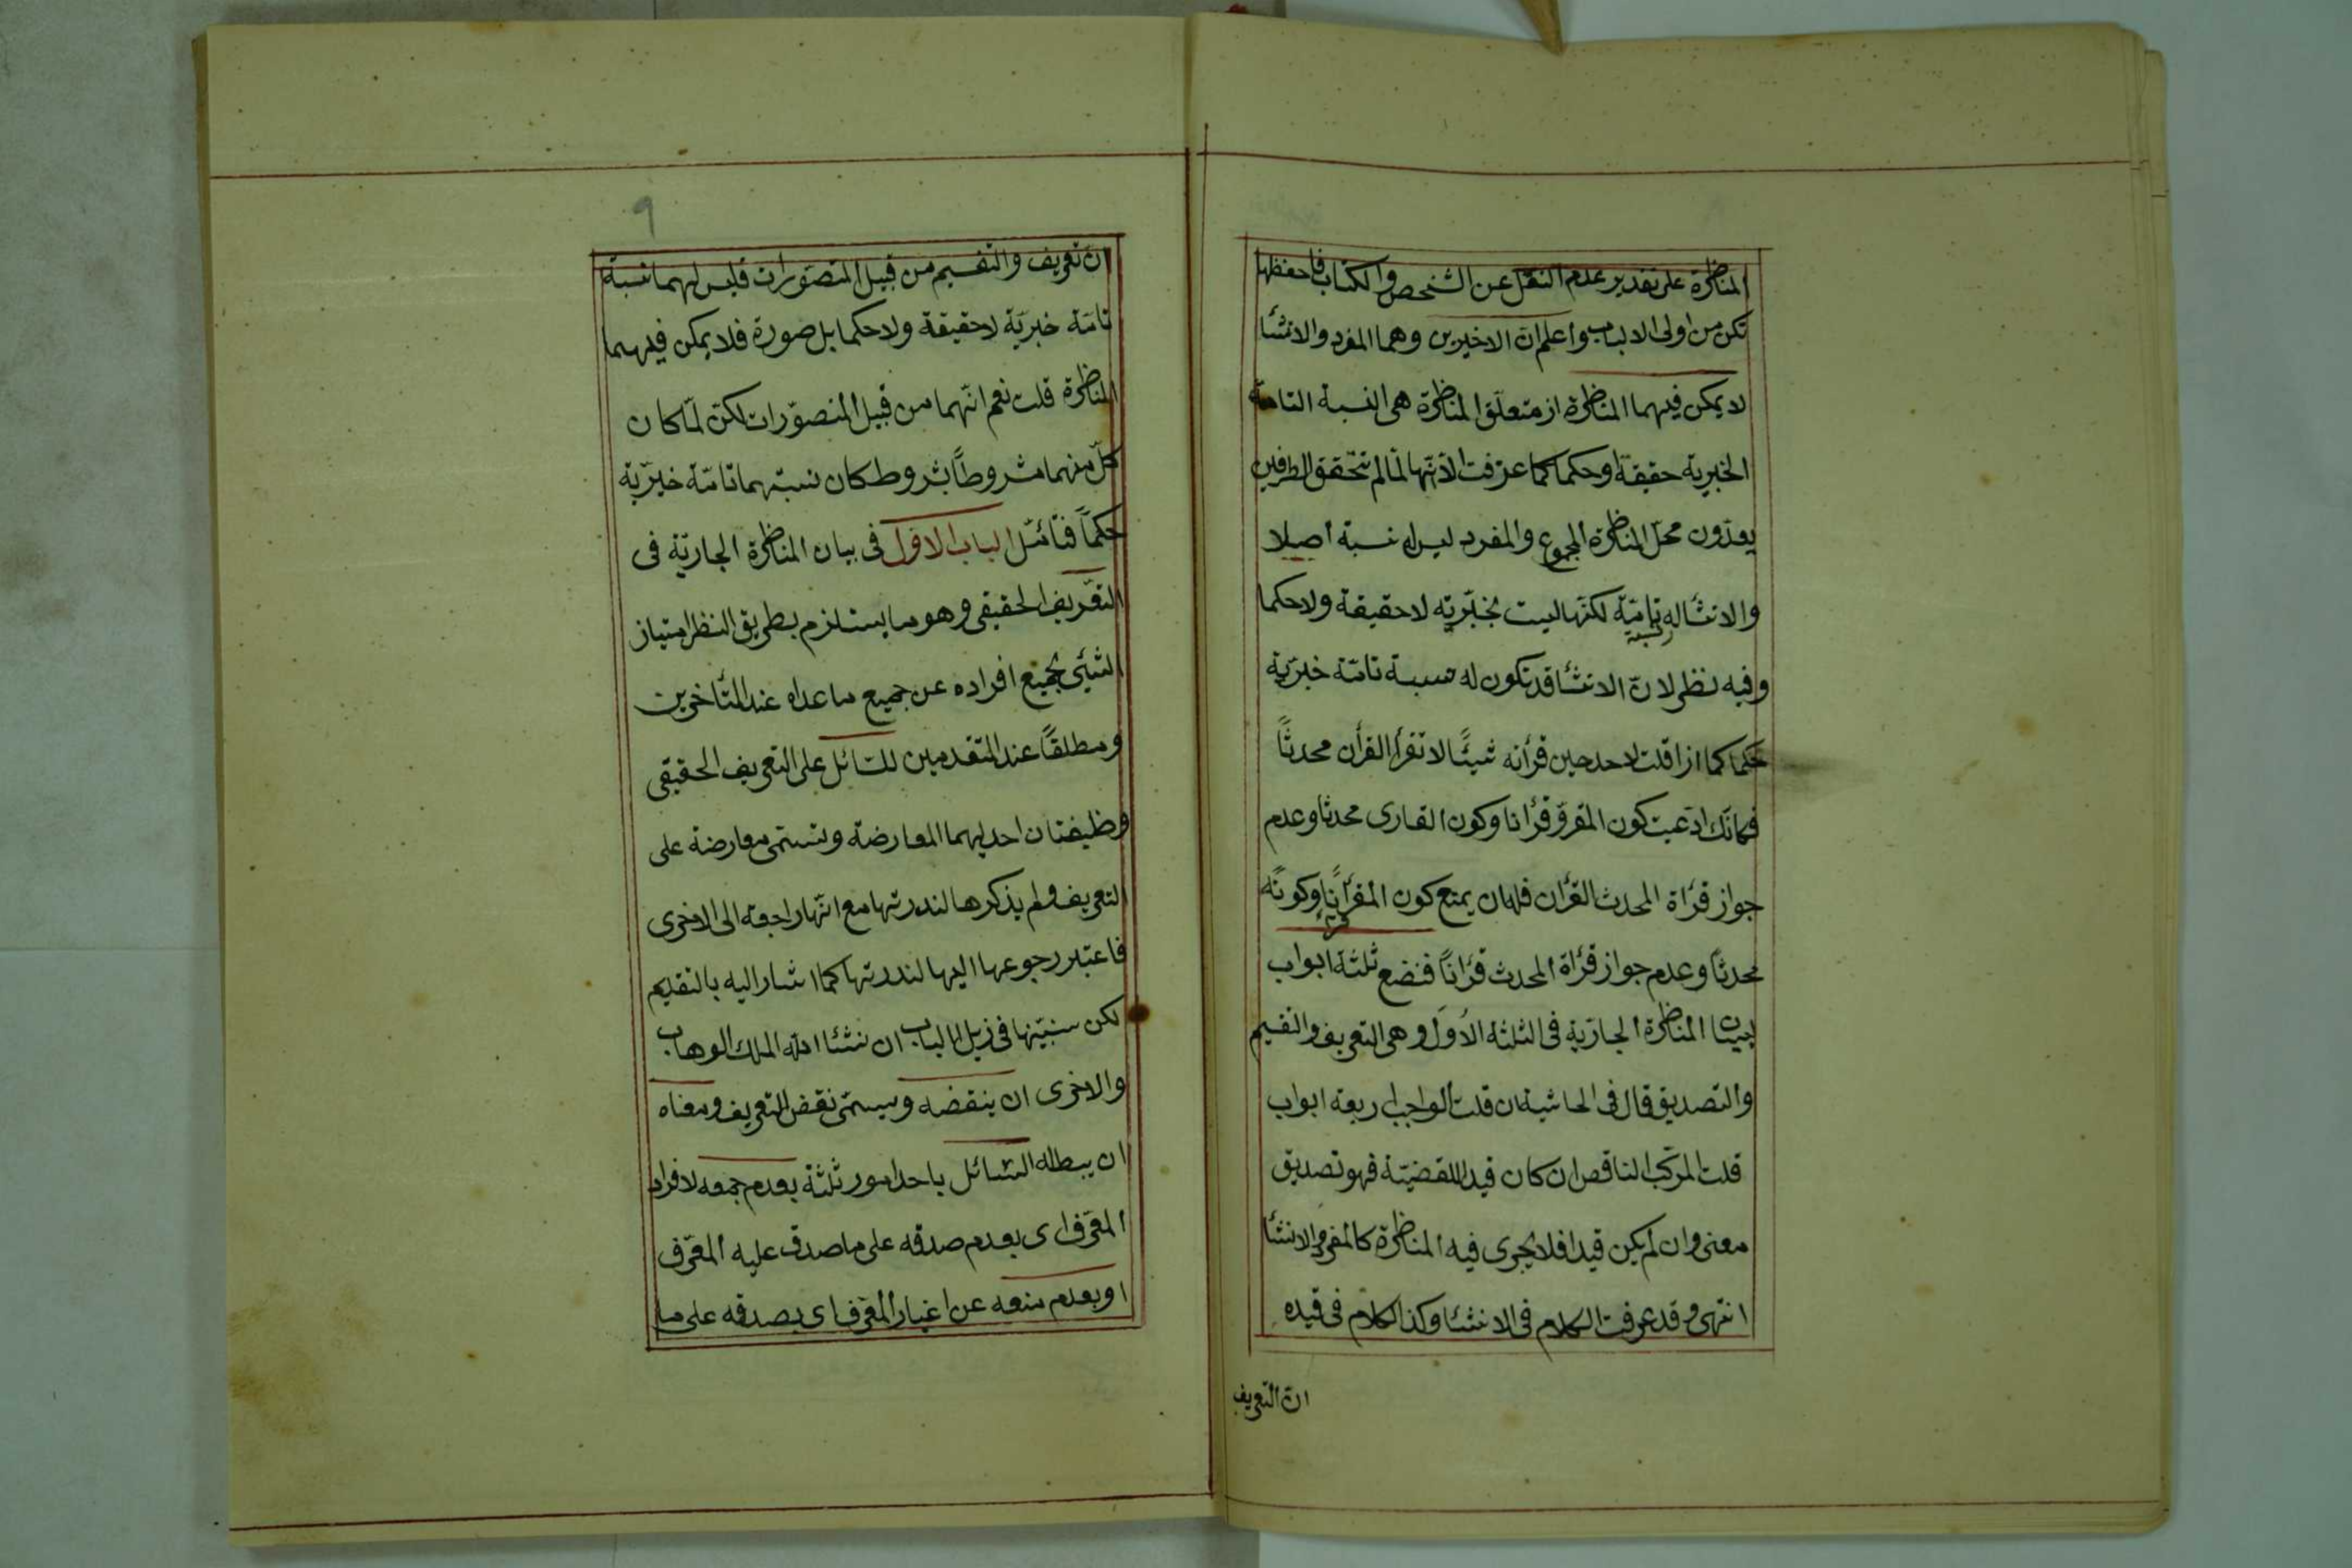 المناظرة على تقدير عدم النقل عن الشخص والكتاب فاحفظها
تكن من اولى الالباب واعلم ان الاخيرين وهما المفرد والانشا
لا يمكن فيهما المناظرة از متعلّق المناظرة هى النسبة التامة
الخبرية حقيقة او حكما كما عرفت الا انّها لمّا لم تتحقق الطرفين
يعدّون محلّ المناظرة المجموع والمفرد ليس له نسبة اصلا
والانشا له نسبة تامّة لكنّها ليست بخبريّة لا حقيقة ولا حكما
وفيه نظر لانّ الانشا قد تكون له نسبة تامّة خبريّة
حكما كما ازا قلت لاحد حين قرأنه شيئًا لا تقرأ القرأن محدثًا
فكانّك ادّعيت كون المقروّ قرأنا وكون القارى محدثا وعدم
جواز قرأة المحدث القرأن فله ان يمنع كون المقرؤ قرأنًا وكونه
محدثًا وعدم جواز قرأة المحدث قرأنًا فنضع ثلثة ابواب
لبيان المناظرة الجاريّة فى الثلثة الاوَل وهى التعريف والتقسيم
والتصديق قال فى الحاشية ان قلت الواجب اربعة ابواب
قلت المركّب الناقص ان كان قيدا للقضيّة فهو تصديق
معنى وان لم يكن قيدا فلا يجرى فيه المناظرة كالمفرد والانشأ
انتهى وقد عرفت الكلام فى الانشا وكذا الكلام فى قيده
ان التعريف
٩
ان تعريف والتقسيم من قبيل المتصوّرات فليس لهما نسبة
تامّة خبريّة لا حقيقة ولا حكما بل صورة فلا يمكن فيهما
المناظرة قلت نعم انّهما من قبيل المتصوّرات لكن لمّا كان
كلّ منهما مشروطًا بشروط كان نسبتهما تامّة خبريّة
حكمًا فتأمّل الباب الاوّل فى بيان المناظرة الجاريّة فى
التعريف الحقيقى وهو ما يستلزم بطريق النظر امتياز
الشيئ بجميع افراده عن جميع ما عداه عند المتأخرين
ومطلقًا عند المتقدمين للسّائل على التعريف الحقيقى
وظيفتان احديهما المعارضة وتسمّى معارضة على
التعريف ولم يذكرها لندرتها مع انّها راجعة الى الاخرى
فاعتبر رجوعها اليها لندرتها كما اشار اليه بالتقديم
لكن سنبيّنها فى زيل الباب ان نشأ الله الملك الوهاب
والاخرى ان ينقضه ويسمّى نقض التعريف ومعناه
ان يبطله السّائل باحد امور ثلثة بعدم جمعه لافراد
المعرّف اى بعدم صدقه على ما صدق عليه المعرّف
او بعدم منعه عن اغيار المعرّف اى بصدقه على ما